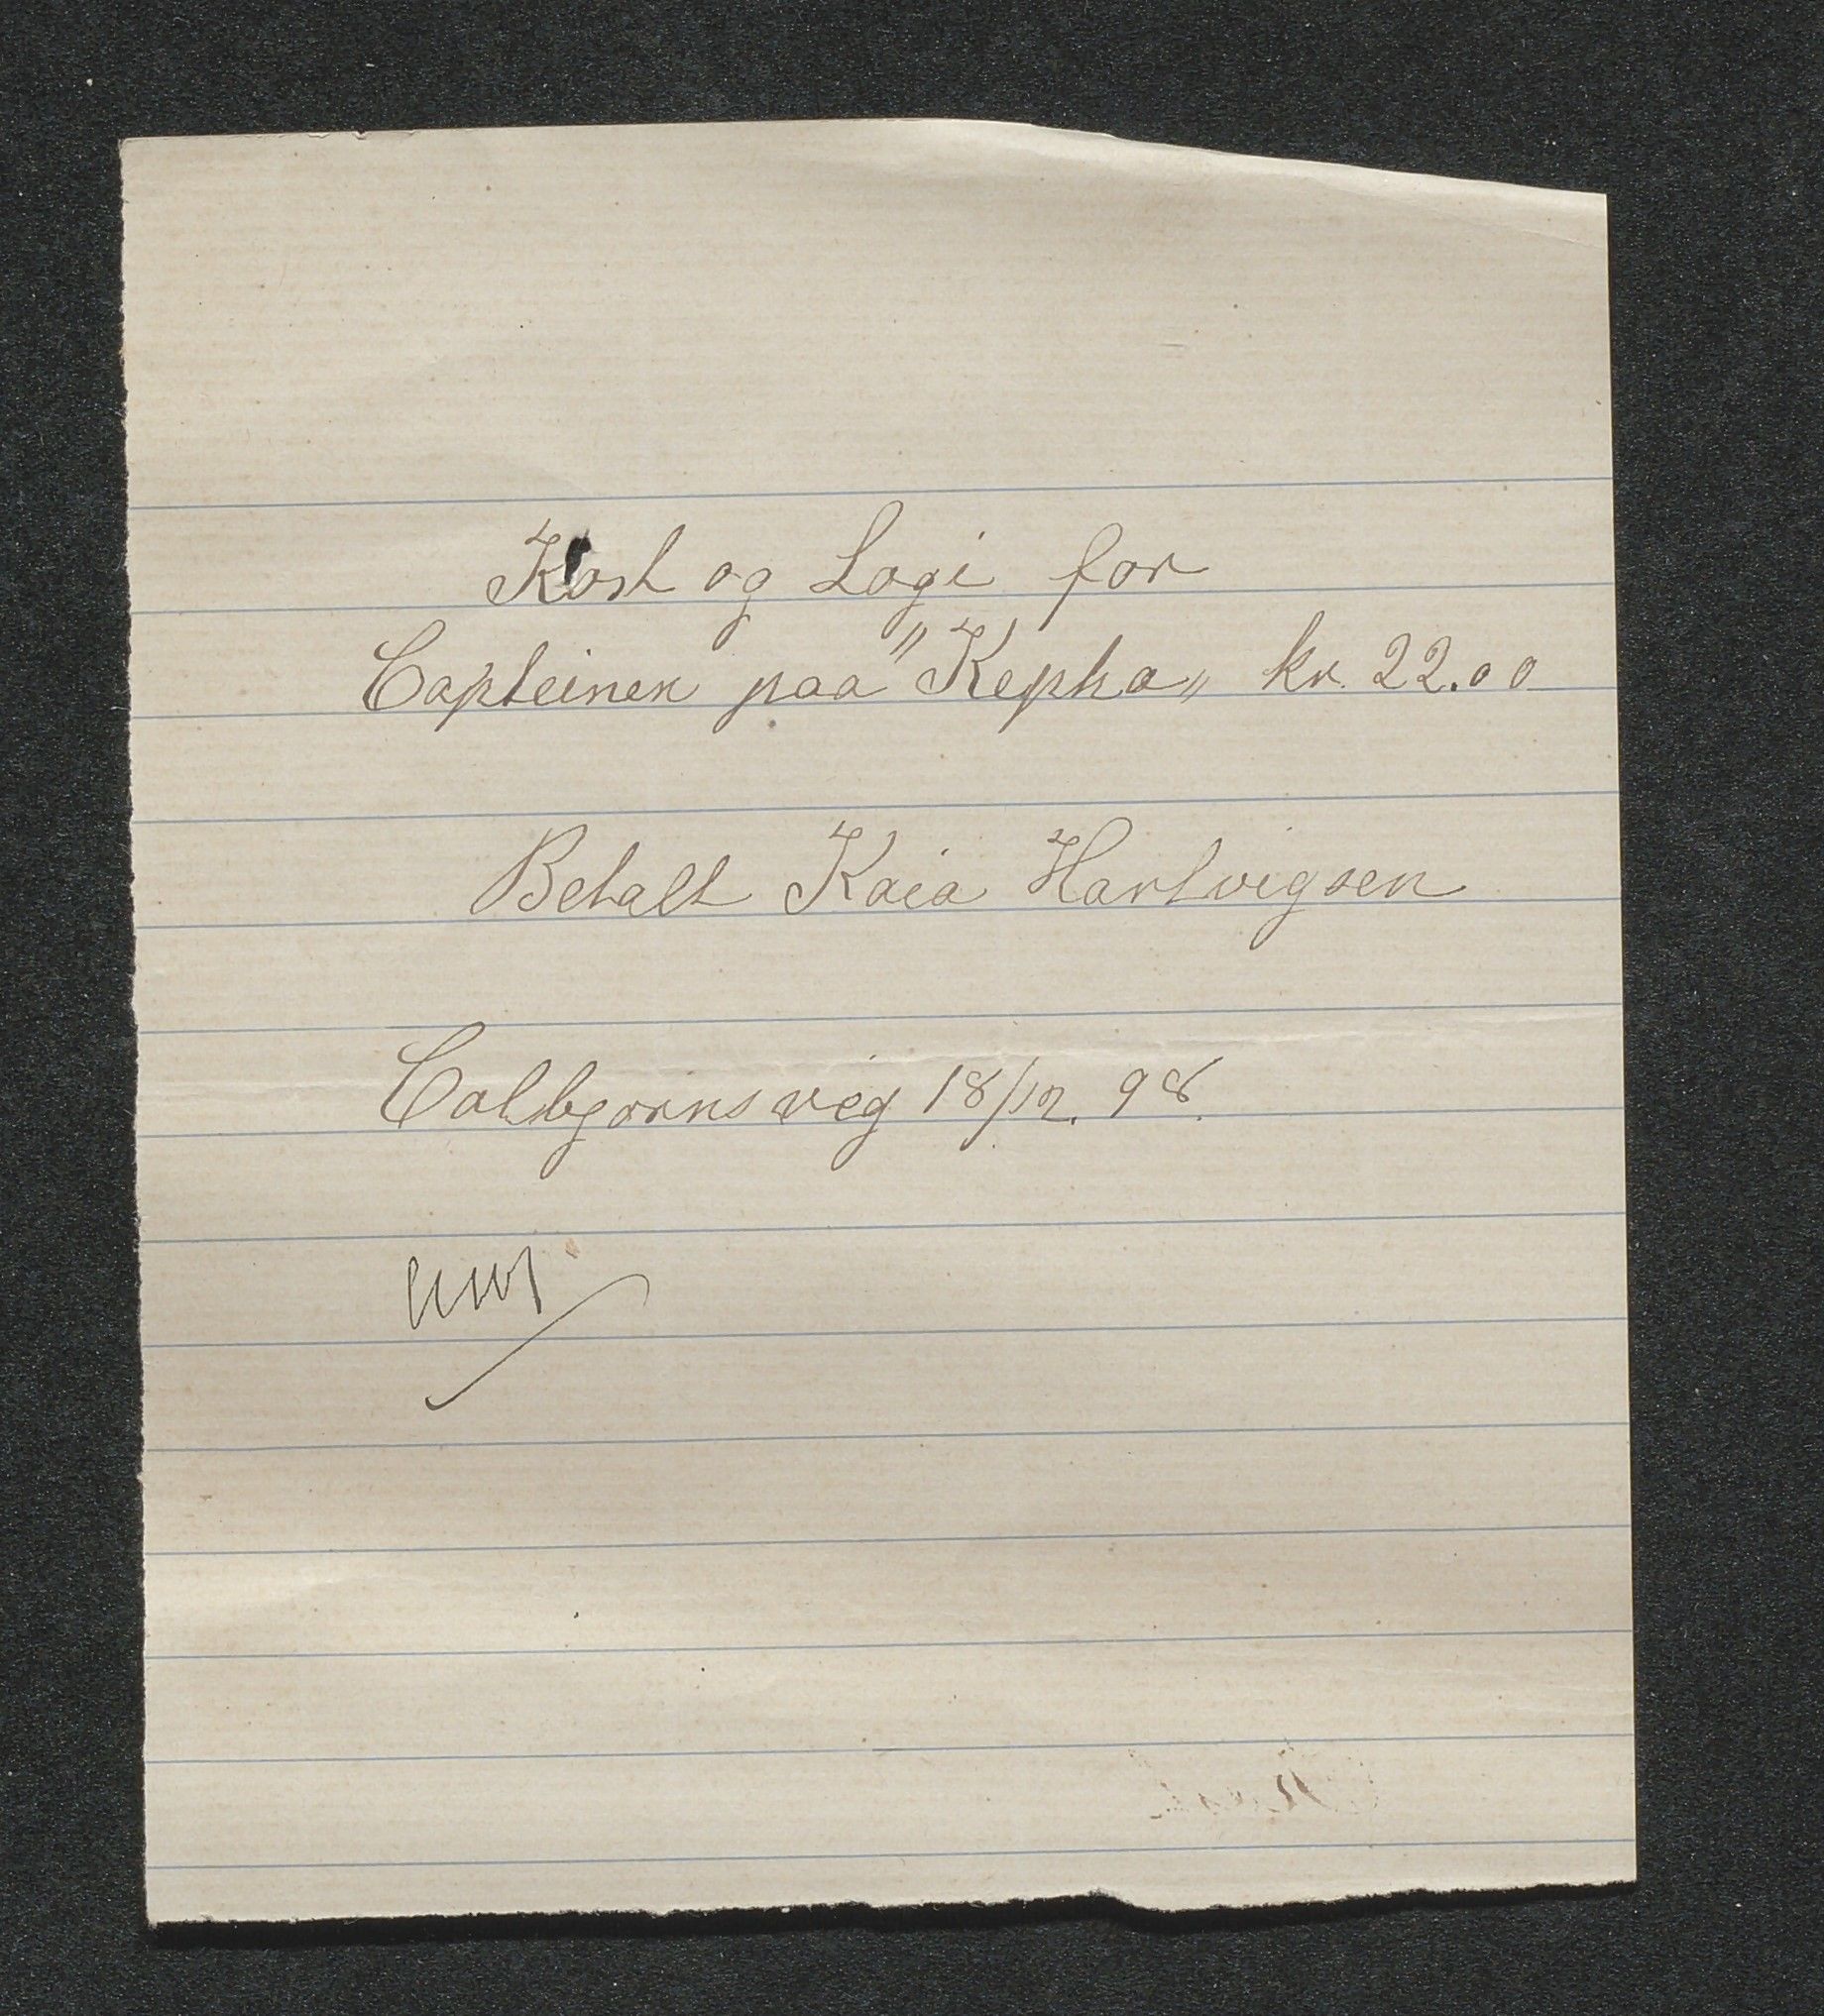 Kost og Logi for
Capteinen paa "Kepha„ kr. 22.00
Betalt Kaia Hartvigsen
Colbjørnsvig 18/12. 98.